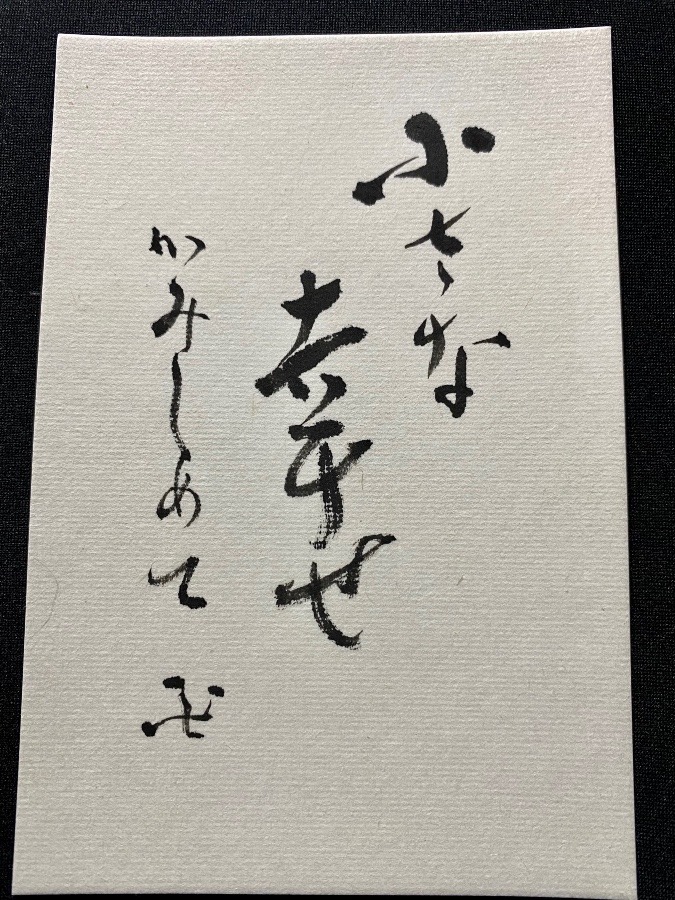 小さな
幸せ
かみしめて